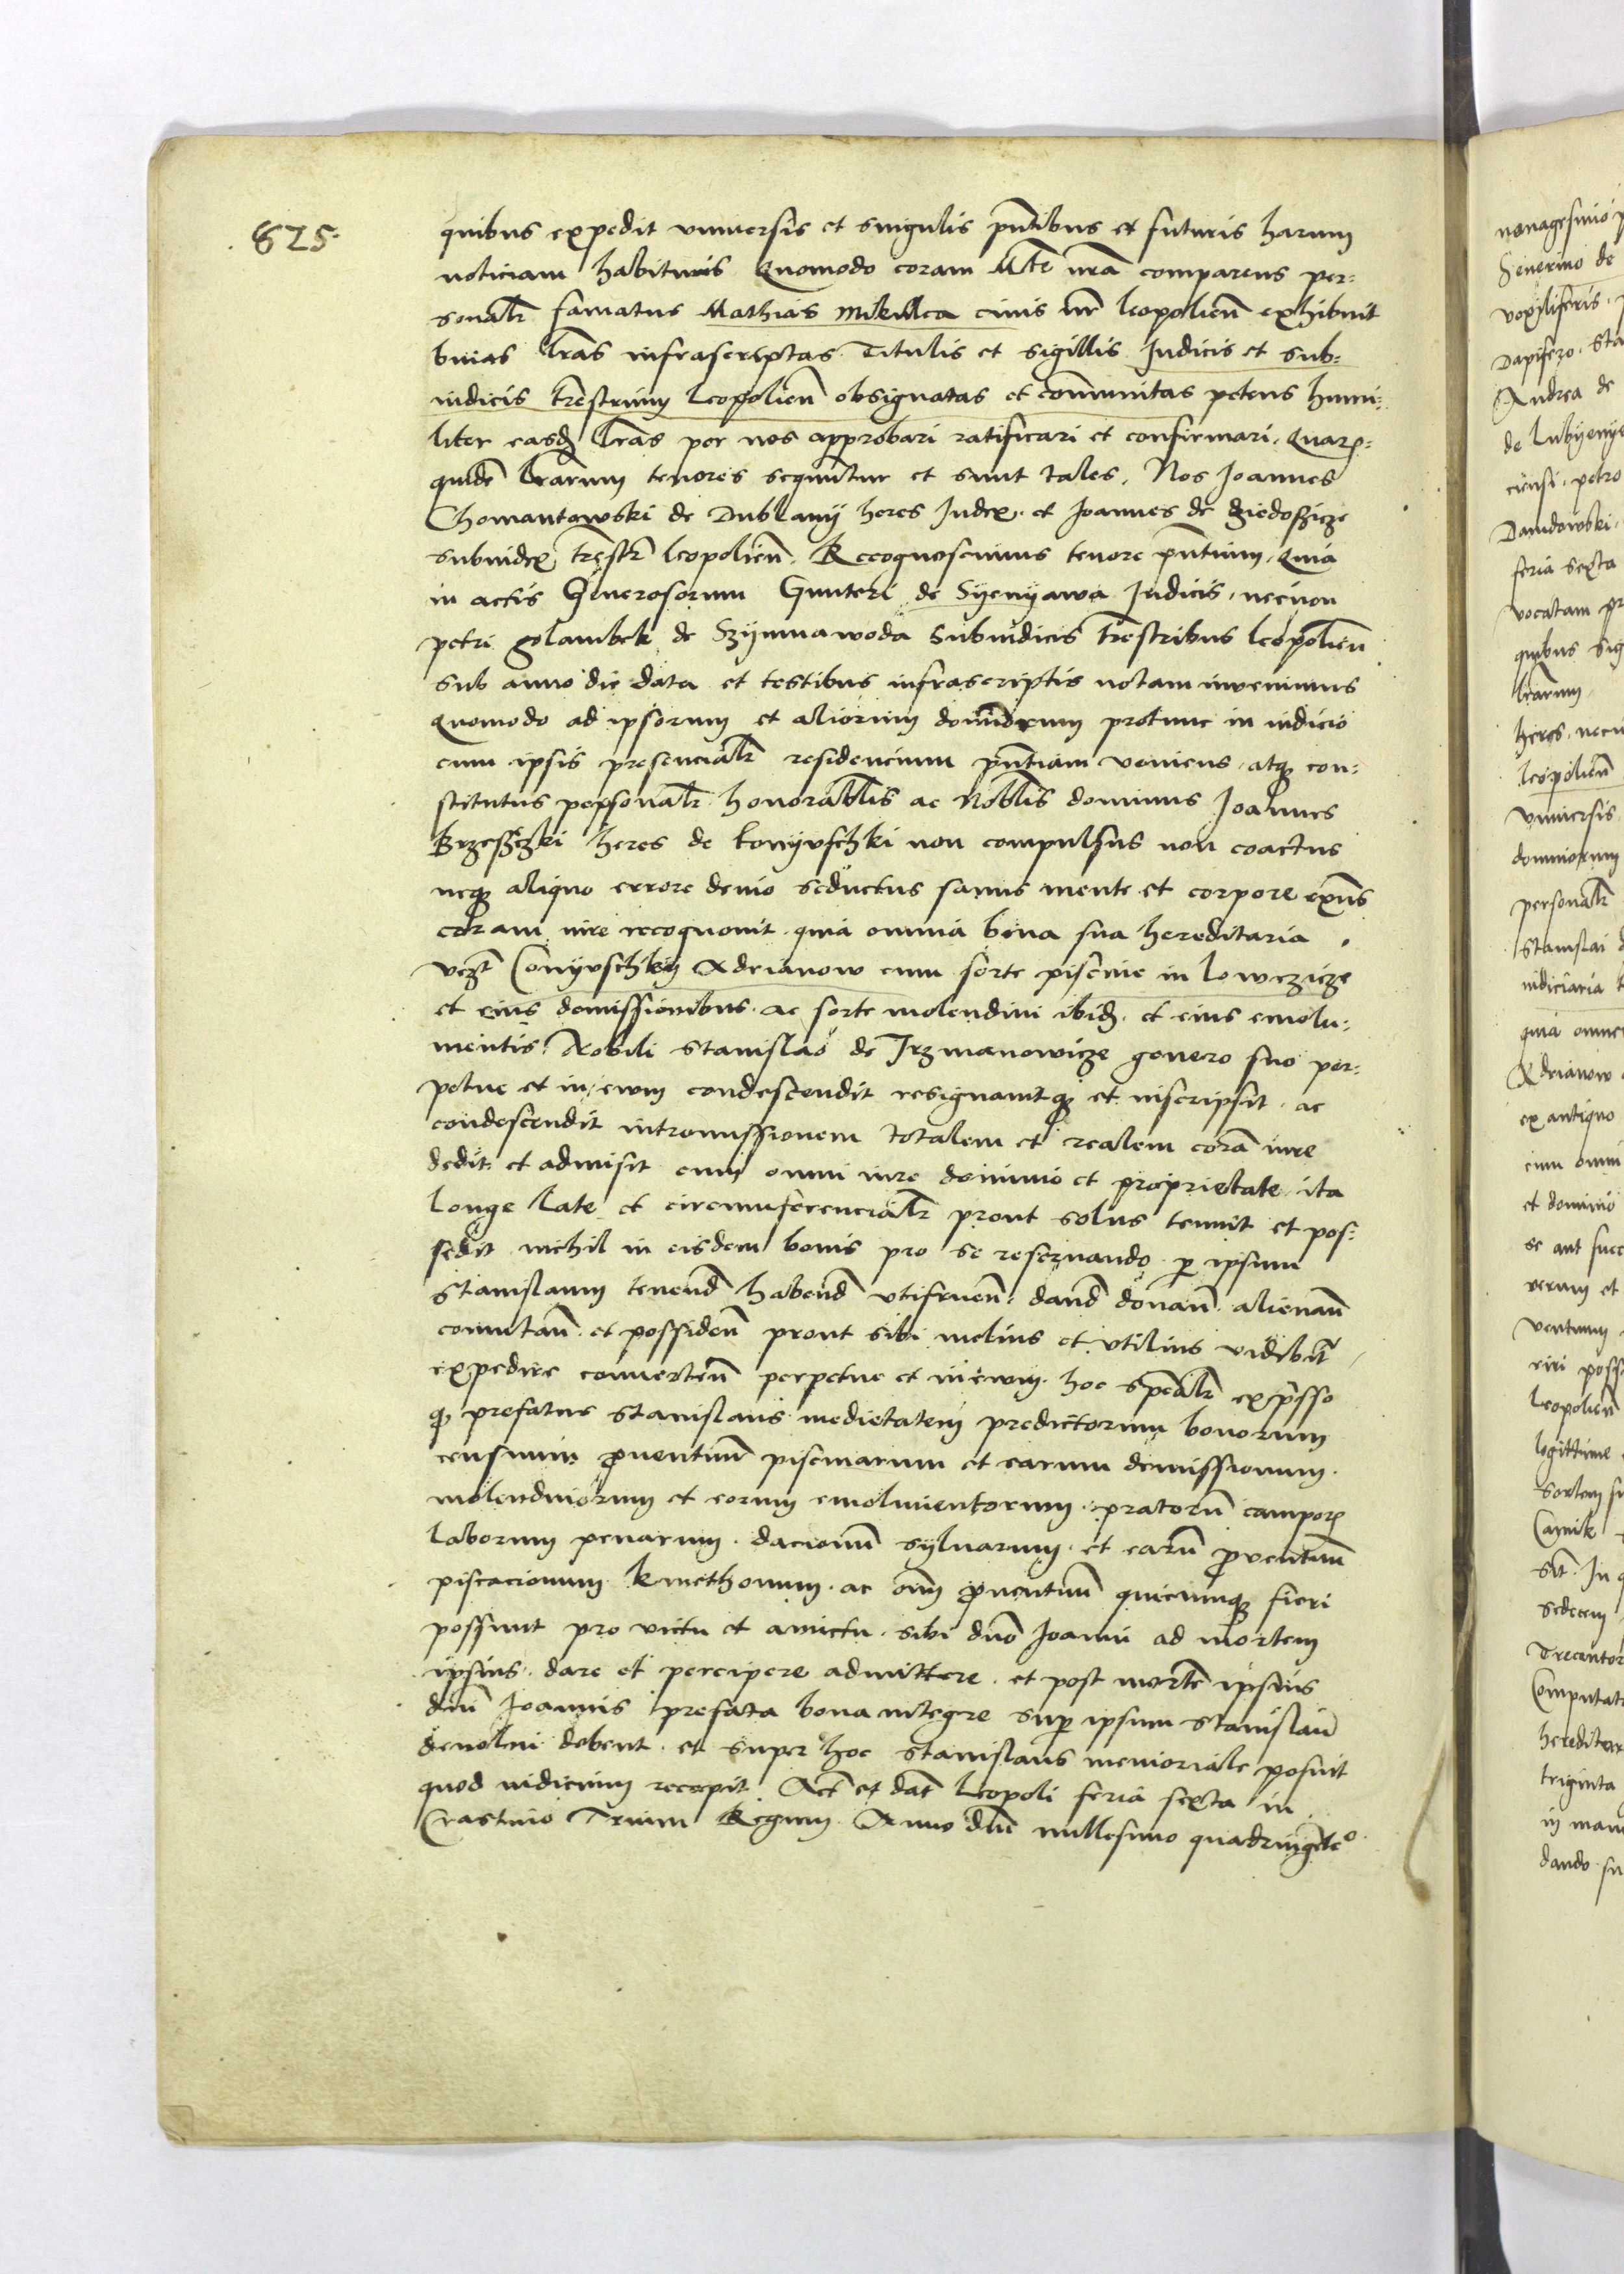 625
quibus expedit vniuersis et singulis pñtibus et futuris harum
noticiam habituris Quomodo coram Mte nrã comparens per=
sonalr famatus Mathias Mikulca ciuis nr̃ leopolieñ exhibuit
binas lrãs infrascriptas Titulis et sigillis Judicis et sub=
iudicis trẽstrium leopolieñ obsignatas et com̃unitas petens humi=
liter easdẽ lrãs per nos approbari ratificari et confirmari. Quarꝝ=
quidẽ lrãrum tenores sequũtur et sunt tales. Nos Joannes
Chomantowski de Dublany heres Judex. et Joannes de dziedoszicze
subiudex trẽstr̃ leopolieñ. Recognoscimus tenore pñtium. Quia
in actis Generosorum Gunteri de Syenyawa Judicis. necnon
petri golambek de Szymnawoda Subiudicis trẽstribus leopolieñ
sub anno die data et testibus infrascriptis notam inuenimus
Quomodo ad ipsorum et aliorum dominorum protunc in iudicio
cum ipsis presencialr̃ residencium pñtiam veniens. atqꝫ con=
stitutus personalr̃ honorablis ac Noblis dominus Joannes
Brzesczki heres de konyvschki non compulsus non coactus
neqꝫ aliquo errore deuio seductus sanus mente et corpore exñs
coram iure recognouit. quia omnia bona sua hereditaria.
vczt Conyvschky Adrianow cum sorte piscine in lowczicze
et eius demissionibus. ac sorte molendini ibidẽ. et eius emolu=
mentis. Nobili Stanislao de Irzmanowicze genero suo per=
petue et in ewm condescendit resignauitqꝫ et inscripsit. ac
condescendit intromissionem totalem et realem corã iure
dedit et admisit cum omni iure dominio et proprietate. ita
longe late et circumferencialr̃ prout solus tenuit et pos=
sedit nichil in eisdem bonis pro se reseruando ꝑ ipsum
Stanislaum tenend̃ habend̃ vtifrueñ. dand̃ donañ. alienañ
comutañ. et possideñ prout sibi melius et vtilius videbit̃
expedire conuerteñ perpetue et in ewm. hoc specialr̃ exp̃sso
qꝫ prefatus Stanislaus medietatem predictorum bonorum
censuum ꝓuentuũ piscinarum et earum demissionum.
molendinorum et eorum emolumentorum. pratorũ camporꝝ
laborum penarum. dacionũ syluarum. et earũ ꝓuentuũ
piscacionum kmethonum. ac om̃ ꝓuentuũ quicumqꝫ fieri
possunt pro victu et amictu. sibi dño Joanni ad mortem
ipsius. dare et percipere admittere. et post mortẽ ipsius
dñi Joannis prefata bona integre suꝑ ipsum Stanislaũ
deuolui debent. et super hoc Stanislaus memoriale posuit
quod iudicium recepit. Act̃ et dat̃ Leopoli feria sexta in
Crastino Trium Regum Anno dñi millesimo quadringẽteo
nonagesimo
Seuerino de
voysliscis.
Dapifero. Sta
Andrea de
de Lubyenye
ciensi. petro
Dauidowski.
feria sexta
vocatam
quibus sig
lrãrum
heres. necn
leopolieñ
vniuersis
dominorum
personalr̃
Stanislai
iudiciaria
quia omne
Adrianow
ex antiquo
cum omni
et dominio
se aut succ
verum et
ventum
viri poss
leopolieñ
legittime
Sortem
sit. In q
sedecim
Trecentor
Computat
hereditar
triginta
in man
dando su